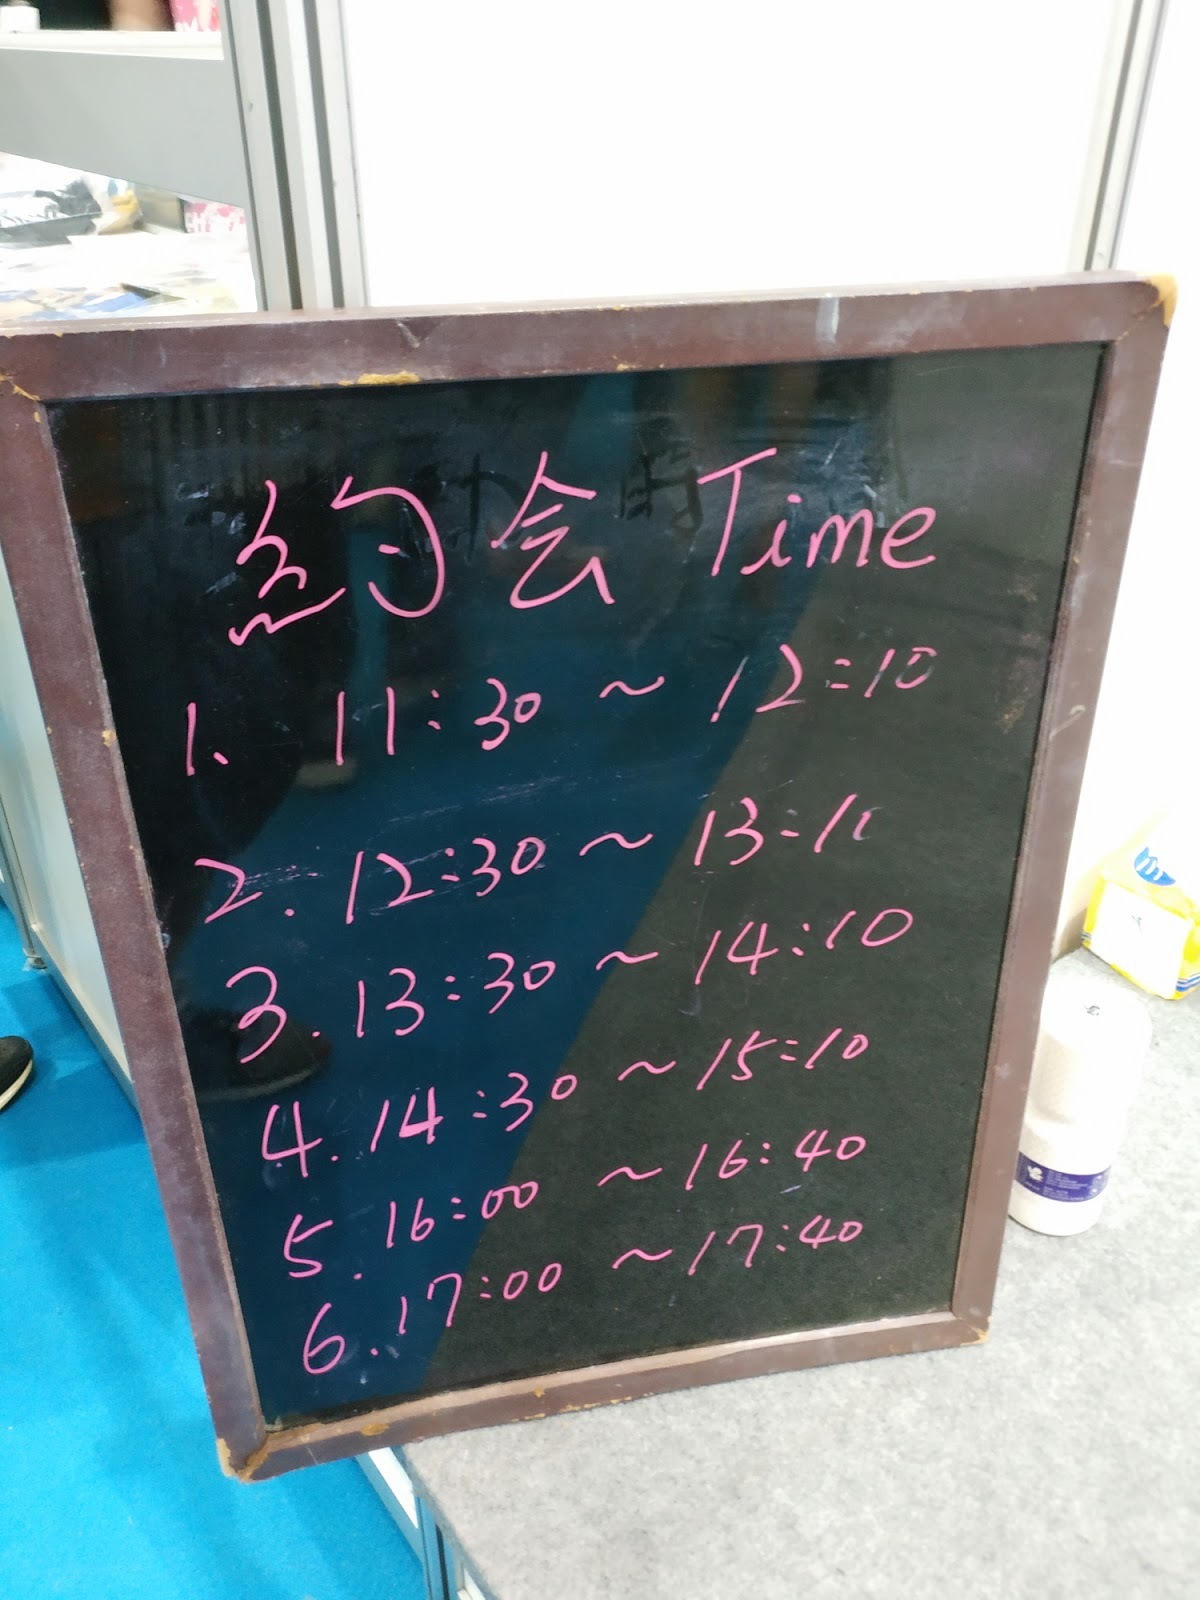 約会 Time
1. 11:30 ~ 12:10
2. 12:30 ~ 13:10
3. 13:30 ~ 14:10
4. 14:30 ~ 15:10
5. 16:00 ~ 16:40
6. 17:00 ~ 17:40